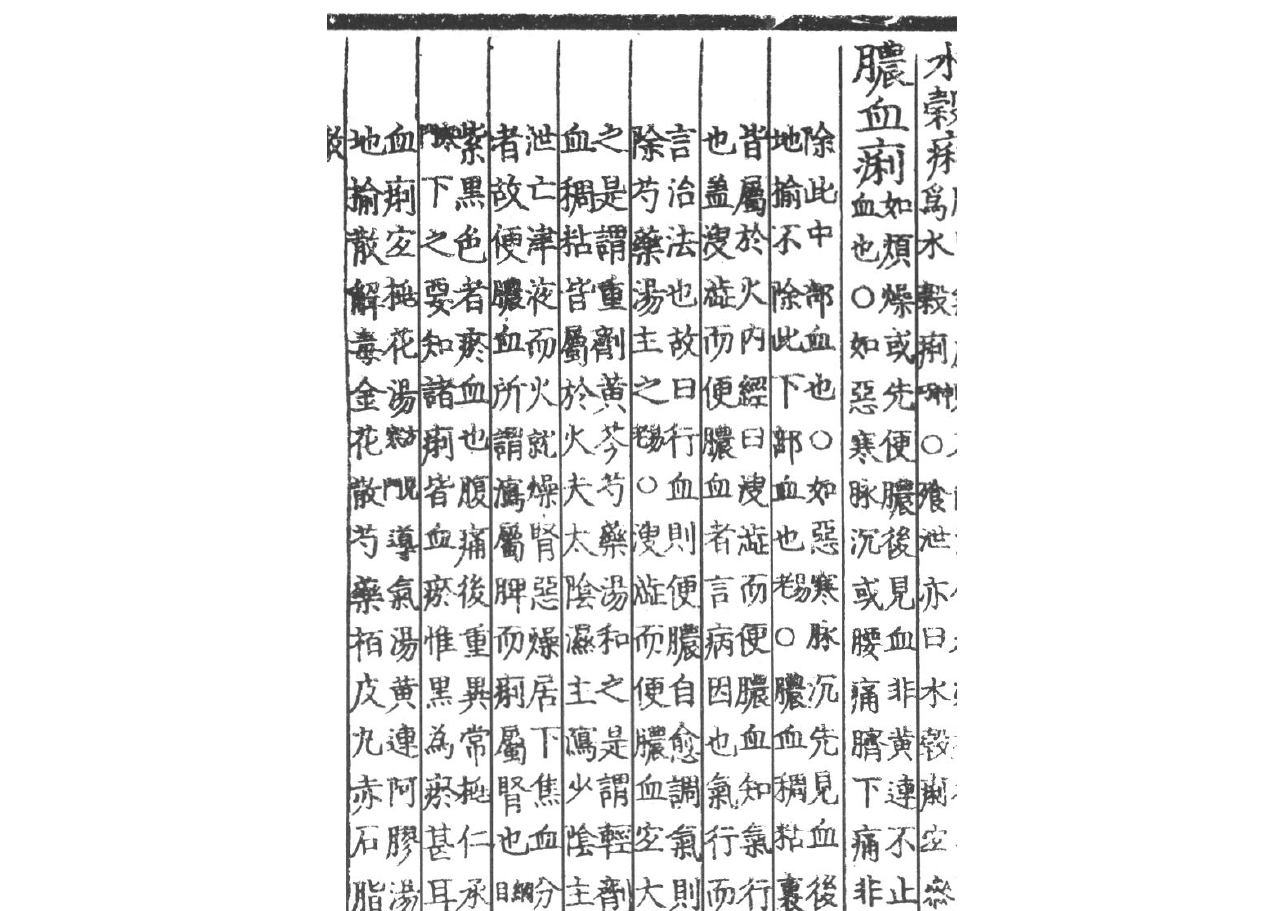 水穀痢
為水穀痢○飱泄亦曰水穀痢宜叅
膿血痢
如煩燥或先便膿後見血非黃連不止
血也○如惡寒脉沉或腰痛臍下痛非
除此中部血也○如惡寒脉沉先見血後
地揄不除此下部血也易老○膿血稠粘裏
皆屬於火內經曰溲澁而便膿血知氣行
也盖溲澁而便膿血者言病因也氣行而
言治法也故曰行血則便膿自愈調氣則
除芍藥湯主之易老○溲澁而便膿血宜大
之是謂重劑黃芩芍藥湯和之是謂輕劑
血稠粘皆屬於火夫太陰濕主瀉少陰主
泄亡津液而火就燥腎惡燥居下焦血分
者故便膿血所謂瀉屬脾而痢屬腎也綱目
紫黑色者瘀血也腹痛後重異常桃仁承
下之要知諸痢皆血瘀惟黑為瘀甚耳
血痢宜桃花湯導氣湯黃連阿膠湯
地揄散解毒金花散芍藥栢皮丸赤石脂
散